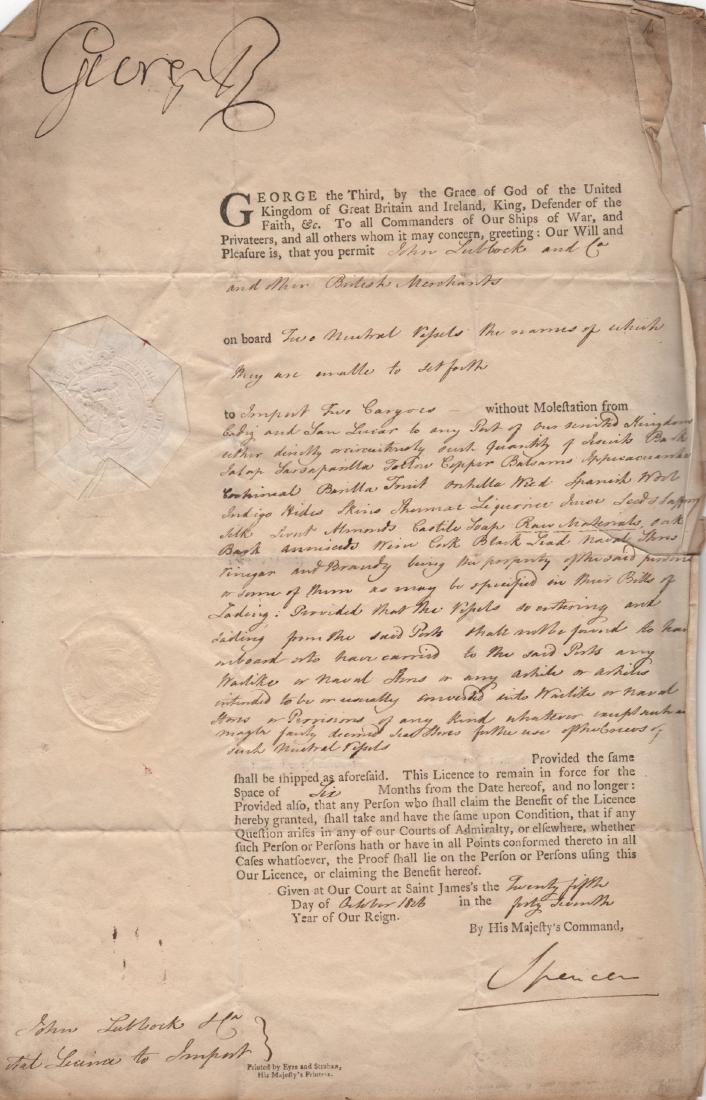 George R
GEORGE the Third, by the Grace of God of the United
Kingdom of Great Britain and Ireland, King, Defender of the
Faith, &c. To all Commanders of Our Ships of War, and
Privateers, and all others whom it may concern, greeting: Our Will and
Pleaſure is, that you permit John Lubbock and Co
and other British Merchants
on board Two Neutral Vessels the names of which
they are unable to set forth
to Import Two Cargoes — without Moleſtation from
Cadiz and San Lucar to any Port of our united Kingdom
either directly or circuitously such quantity of Jesuits Bark
Jalap Sarsaparilla Copper Balsams
Cochineal Barilla Fruit Orchella Weed Spanish Wool
Indigo Hides Skins Liquorice Juice Seeds
Silk Almonds Castile Soap Raw Materials Oak
Bark Anniseeds Wine Cork Black Lead Naval Stores
Vinegar and Brandy being the property of the said persons
or some of them as may be specified in their Bills of
Lading: Provided that the Vessels so entering and
lading from the said Ports shall not be found to have
onboard or to have carried to the said Ports any
Warlike or Naval Stores or any Article or Articles
intended to be or usually converted into Warlike or Naval
Stores or Provisions of any kind whatever except such as
may be fairly deemed Sea Stores for the use of the Crews of
such Neutral Vessels
Provided the ſame
ſhall be ſhipped as aforeſaid. This Licence to remain in force for the
Space of Six Months from the Date hereof, and no longer:
Provided alſo, that any Perſon who ſhall claim the Benefit of the Licence
hereby granted, ſhall take and have the ſame upon Condition, that if any
Queſtion ariſes in any of our Courts of Admiralty, or elſewhere, whether
ſuch Perſon or Perſons hath or have in all Points conformed thereto in all
Caſes whatſoever, the Proof ſhall lie on the Perſon or Perſons uſing this
Our Licence, or claiming the Benefit hereof.
Given at Our Court at Saint James's the Twenty fifth
Day of October 1806 in the forty Seventh
Year of Our Reign.
By His Majeſty's Command,
Spencer
John Lubbock & Co
Licence to Import
Printed by Eyre and Strahan,
His Majeſty's Printers.